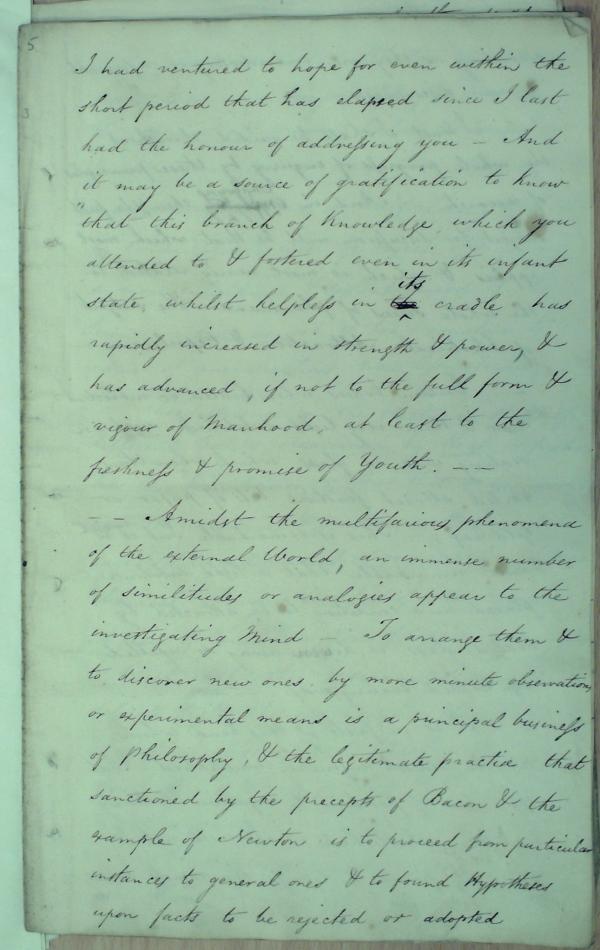 5
I had ventured to hope for even within the
short period that has elapsed since I last
had the honour of addressing you – And
it may be a source of gratification to know
that this branch of Knowledge, which you
attended to & fostered even in its infant
state, whilst helpless in its cradle has
rapidly increased in strength & power, &
has advanced, if not to the full form &
vigour of Manhood, at least to the
freshness & promise of Youth. — —
— — Amidst the multifarious phenomena
of the external World, an immense number
of similitudes or analogies appear to the
investigating Mind – To arrange them &
to discover new ones by more minute observations
or experimental means is a principal business
of Philosophy, & the legitimate practise that
sanctioned by the precepts of Bacon & the
example of Newton is to proceed from particular
instances to general ones & to found Hypotheses
upon facts to be rejected or adopted